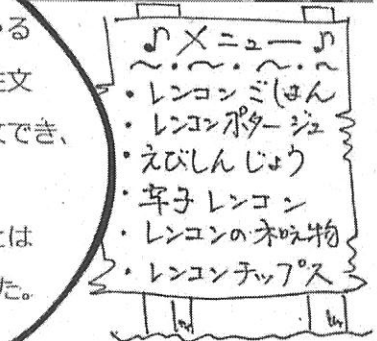 る
文
でき、
は
た。
♪メニュー♪
・レンコンごはん
・レンコンポタージュ
・えびしんじょう
・辛子レンコン
・レンコンの和え物
・レンコンチップス